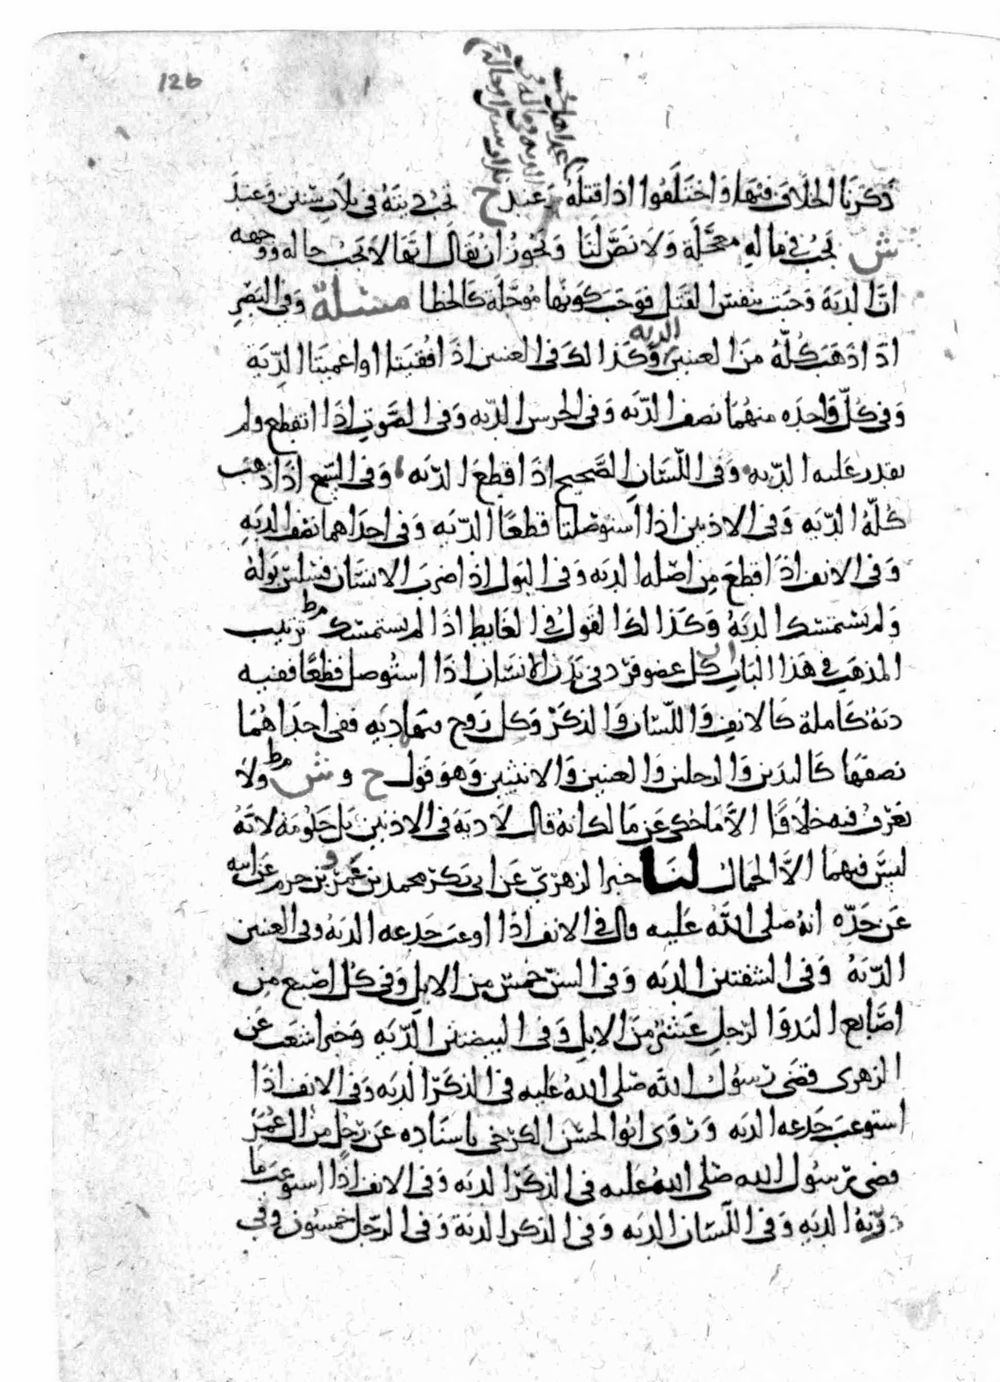 126
ذكرنا الخلاف فيها واختلفوا اذا قتله عند ح تجب ديته في ثلاث سنين وعند
ش تجب في ماله معجلة ولا نص لنا ويجوز ان يقال انها لا تجب حاله ووجهه
ان الديه وجبت بنفس القتل فوجب كونها مؤجلة كالخطا مسئلة وفي البصر
اذا ذهب كله من العينين الديه وكذلك في العينين اذا فقيتا او اعميتا الدية
وفي كل واحده منهما نصف الديه وفي الخرس الديه وفي الصوت اذا انقطع ولم
يقدر عليه الديه وفي اللسان الصحيح اذا قطع الديه وفي السمع اذا ذهب
كله الديه وفي الاذنين اذا استوصلتا قطعا الديه وفي احداهما نصف الديه
وفي الانف اذا قطع من اصله الديه وفي البول اذا ضرب الانسان فسلس بوله
ولم يستمسك الديه وكذلك القول في الغايط اذا لم يستمسك ترتيب
المذهب في هذا الباب ان كل عضو فرد في بدن الانسان اذا استوصل قطعا ففيه
دية كاملة كالانف واللسان والذكر وكل زوج فيهما ديه ففي احداهما
نصفها كاليدين والرجلين والعينين والانثيين وهو قول ح و ش ولا
نعرف فيه خلافا الا ما حكي عن مالك انه قال لا دية في الاذنين بل حكومة لانه
ليس فيهما الا الجمال لنا خبر الزهري عن ابي بكر محمد بن عمرو بن حزم عن ابيه
عن جده انه صلى الله عليه قال في الانف اذا اوعب جدعه الديه وفي العينين
الديه وفي الشفتين الديه وفي السن خمس من الابل وفي كل اصبع من
اصابع اليد والرجل عشر من الابل وفي البيضتين الديه وخبر اشعب عن
الزهري قضى رسول الله صلى الله عليه في الذكر الديه وفي الانف اذا
استوعب جدعه الديه وروى ابو الحسن الكرخي باسناده عن رجل من ال عمر
قضى رسول الله صلى الله عليه في الذكر الديه وفي الانف اذا استوعب ما
رنه الديه وفي اللسان الديه وفي الذكر الدية وفي الرجل خمسون وفي